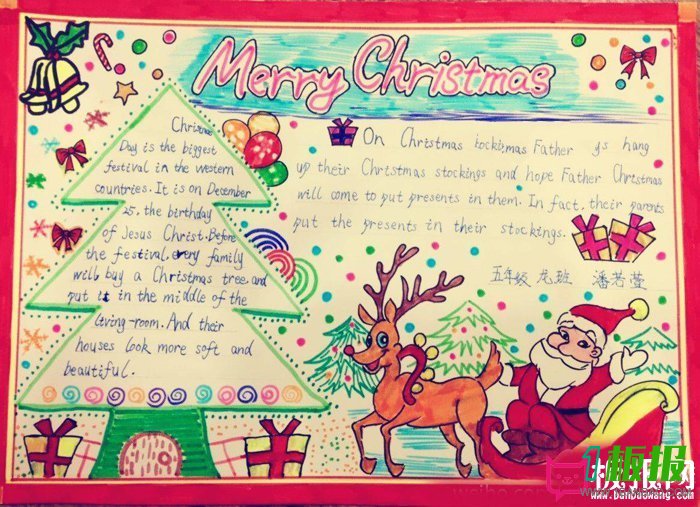 Merry Christmas
Christmas
Day is the biggest
festival in the western
countries. It is on December
25. the birthday
of Jesus Christ. Before
the festival, every family
will buy a Christmas tree and
put it in the middle of the
living-room. And their
houses look more soft and
beautiful.
On Christmas Father ys hang
up their Christmas stockings and hope Father Christmas
will come to put presents in them. In fact, their parents
put the presents in their stockings.
五年级 龙班 潘若萱
板报网
www.banbaowang.com